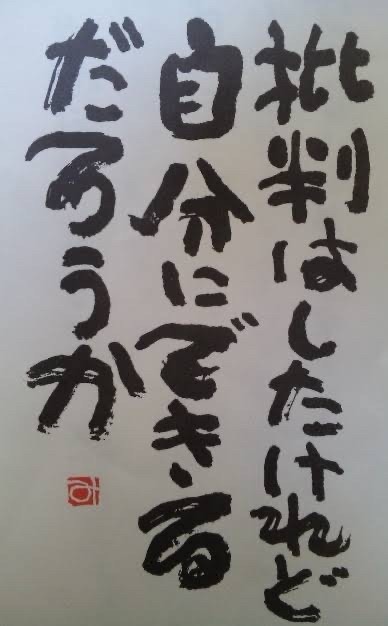 批判はしたけれど
自分にできる
だろうか
み